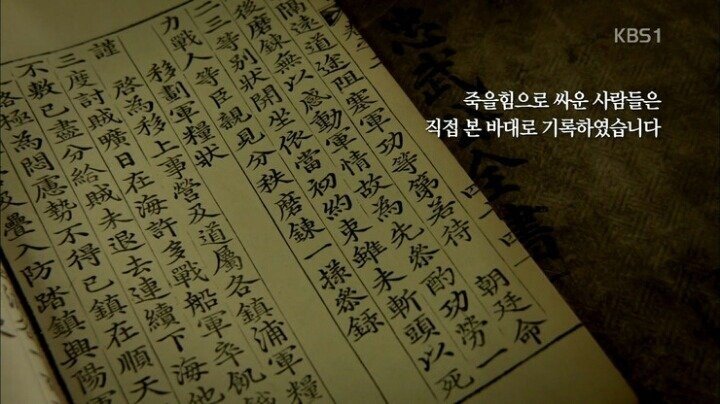 KBS1
죽을힘으로 싸운 사람들은
직접 본 바대로 기록하였습니다
忠武公全書
隔遠道途阻塞軍功等第若待 朝廷命
後磨鍊無以感動軍情故為先參酌功勞一
二三等別狀開坐依當初約束雖未斬頭以死
力戰人等臣親見分秩磨鍊一樣參錄
移劃軍糧狀
謹 啓為移上事營及道屬各鎮浦軍糧
三度討賊曠日在海許多戰船軍卒飢餓
不數已盡分給賊未退去連續下海他
極為悶慮勢不得已鎮在順天
疊入防踏鎮興陽軍